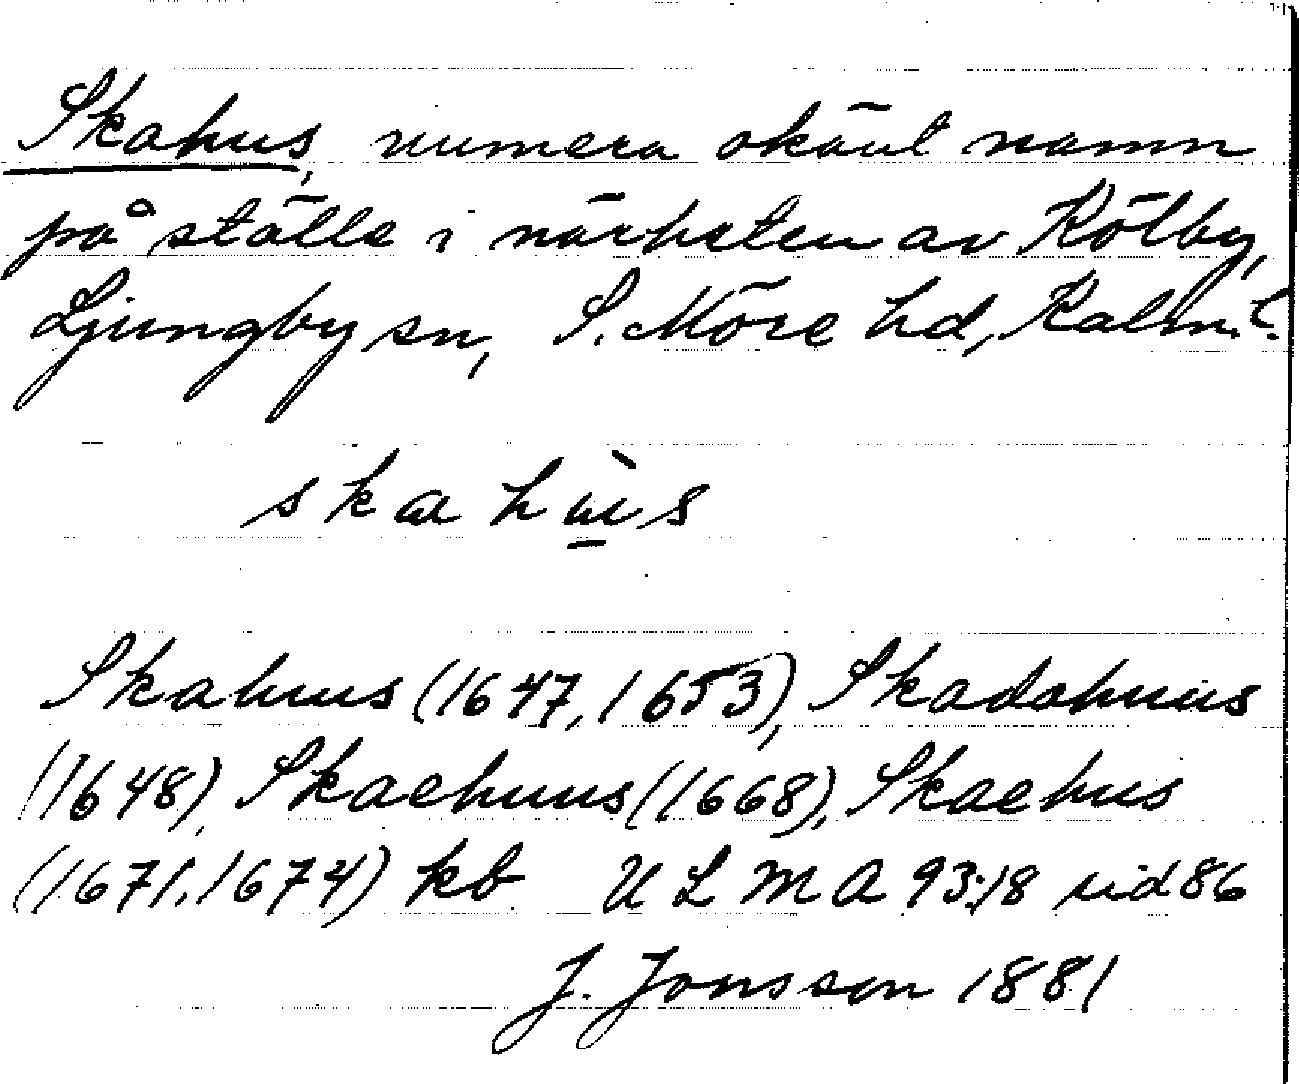 Skahus, numera okänt namn
på ställe i närheten av Kölby,
Ljungby sn, S. Möre hd, Kalm. l.
skahùs
Skahus (1647, 1653), Skadahuus
(1648), Skaehuus (1668), Skaehus
(1671, 1674) kb. ULMA 93:18 sid 86
J. Jonsson 1881